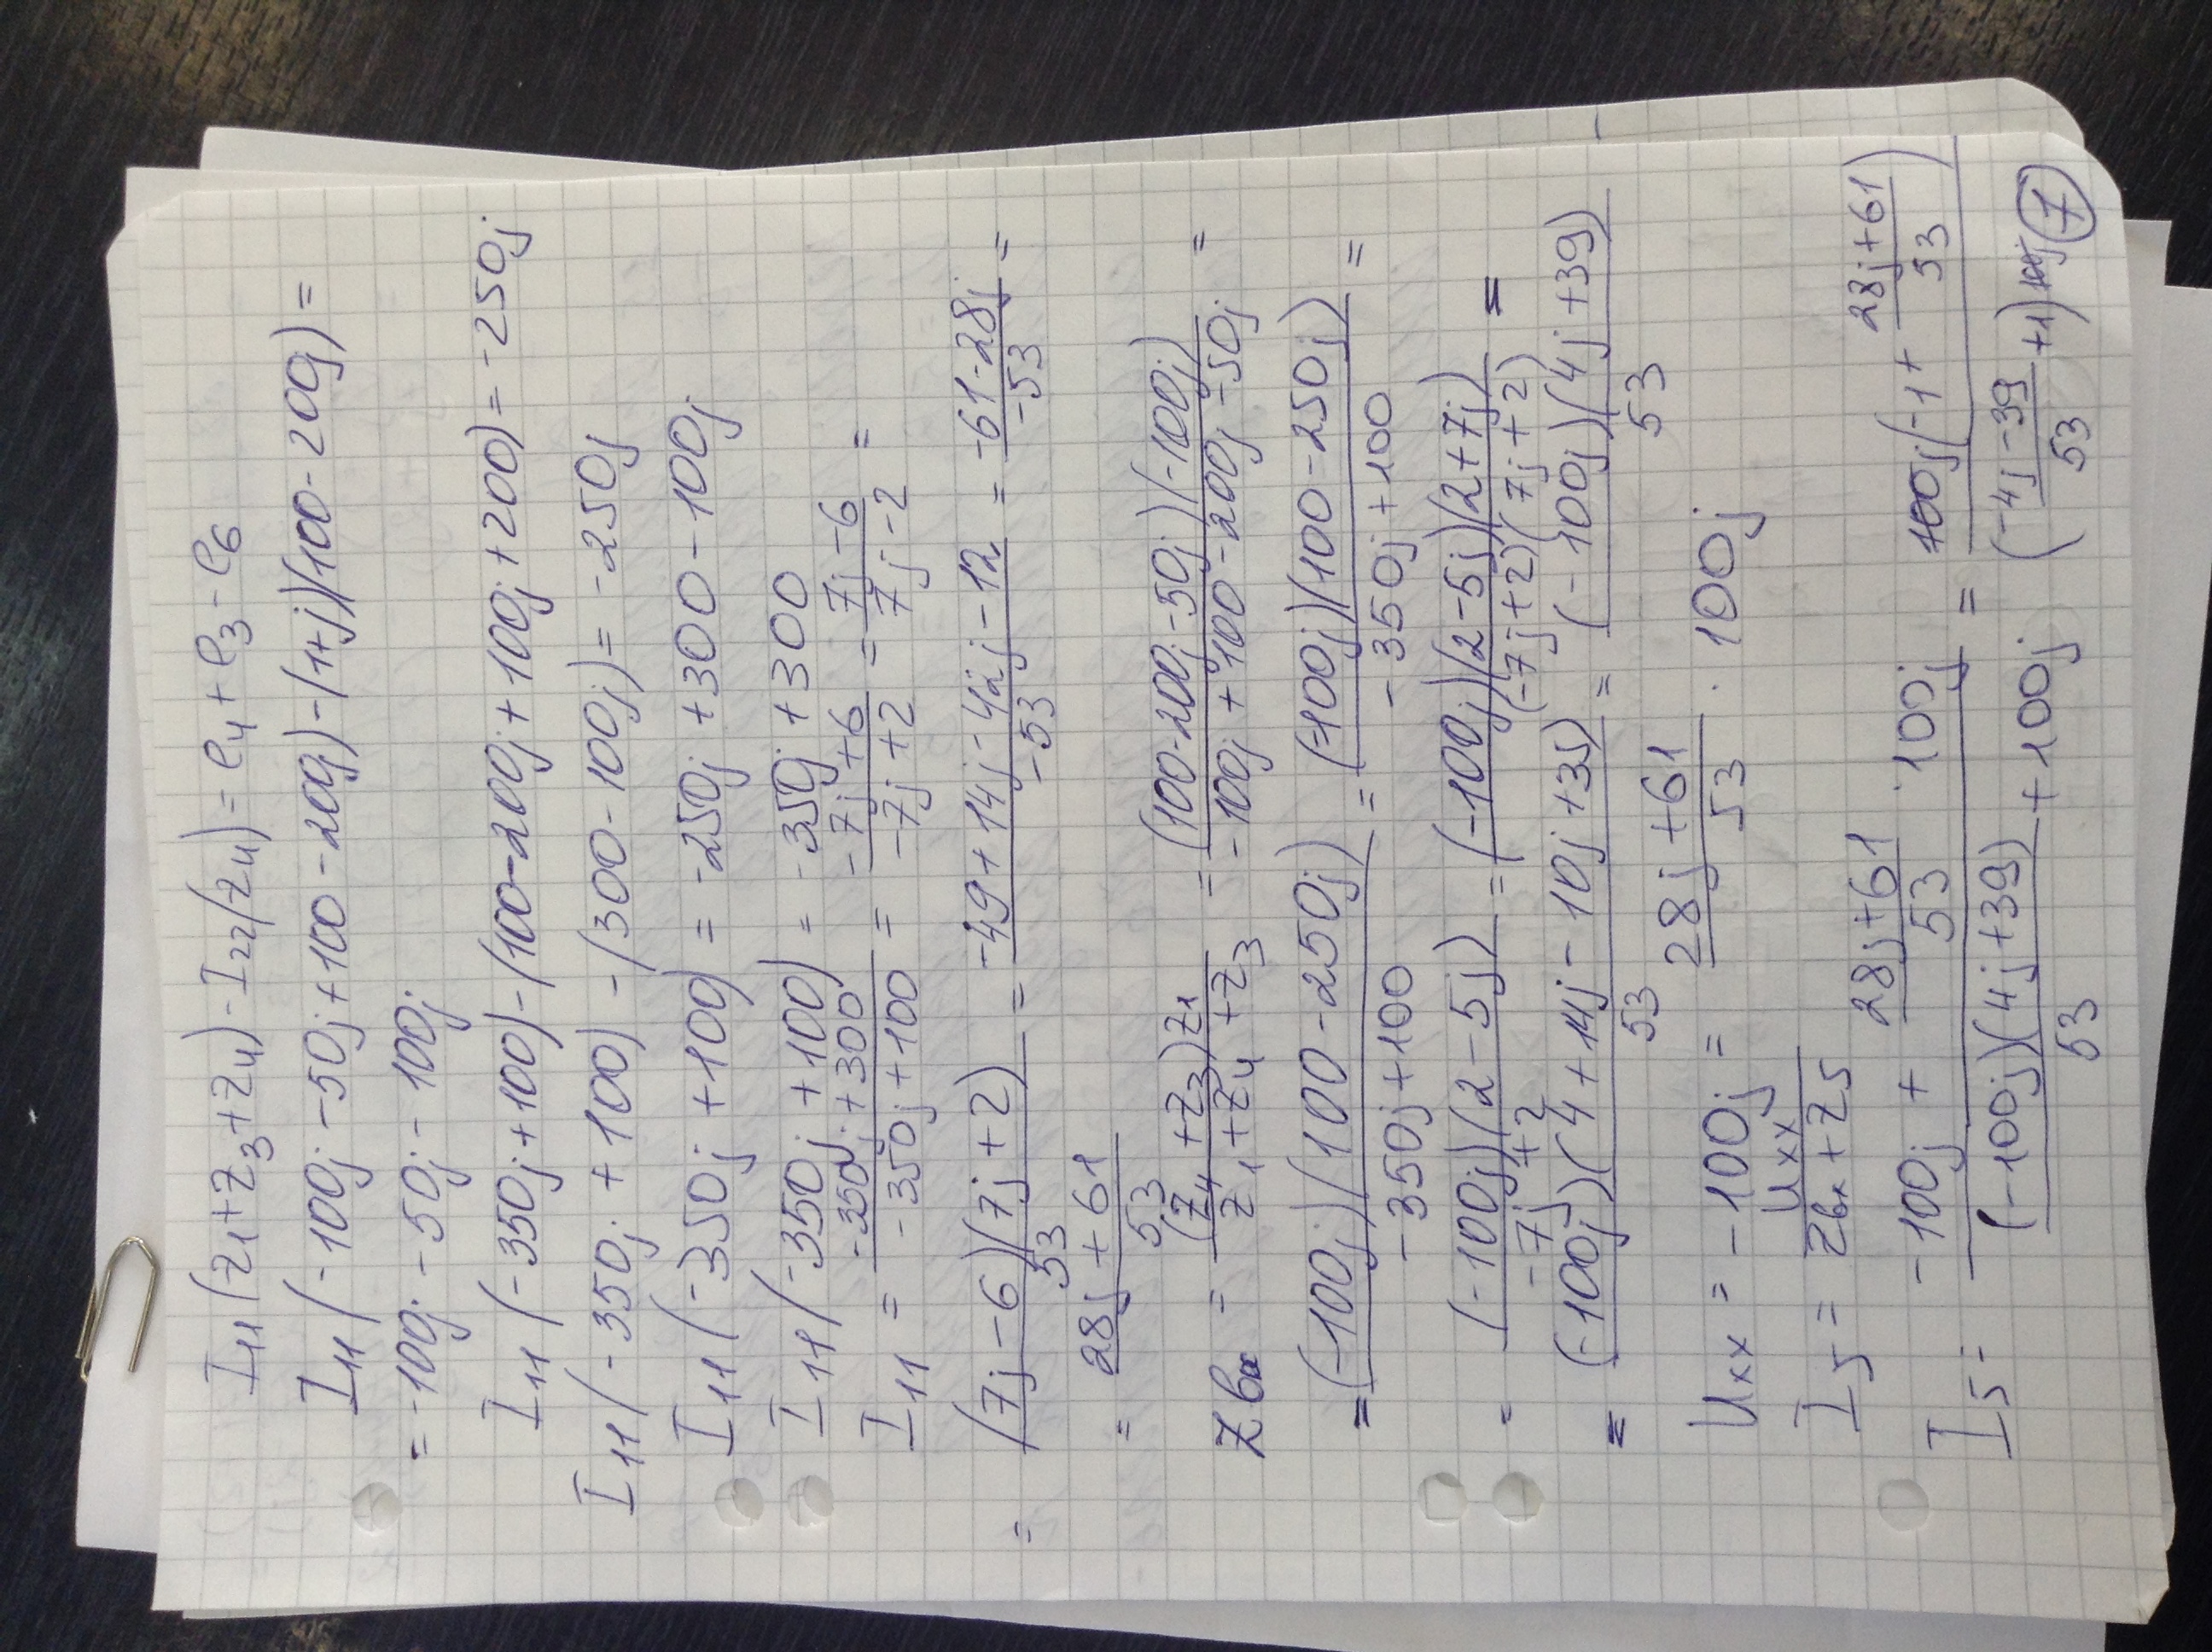 I₁₁(z₁+z₃+z₄) - I₂₂(z₄) = e₄+e₃-e₆
I₁₁(-100j-50j+100-200j)-(1+j)(100-200j)=
=-100j-50j-100j
I₁₁(-350j+100)-(100-200j+100j+200)=-250j
I₁₁(-350j+100)-(300-100j)=-250j
I₁₁(-350j+100) = -250j+300-100j
I₁₁(-350j+100) = -350j+300
I₁₁ = (-350j+300)/(-350j+100) = (-7j+6)/(-7j+2) = (7j-6)/(7j-2) =
= (7j-6)(7j+2)/53 = (-49+14j-42j-12)/-53 = (-61-28j)/-53 =
= (28j+61)/53
Zвх = (z₄+z₃)z₁/(z₁+z₄+z₃) = (100-200j-50j)(-100j)/(-100j+100-200j-50j) =
= (-100j)(100-250j)/(-350j+100) = (-100j)(100-250j)/(-350j+100) =
= (-100j)(2-5j)/(-7j+2) = (-100j)(2-5j)(2+7j)/(-7j+2)(7j+2) =
= (-100j)(4+14j-10j+35)/53 = (-100j)(4j+39)/53
Uхх = -100j = (28j+61)/53 · 100j
I₅ = Uхх/(Zвх+Z₅)
I₅ = (-100j + (28j+61)/53 · 100j)/((-100j)(4j+39)/53 + 100j) = 100j(-1 + (28j+61)/53)/((-4j-39)/53 +1)100j
7